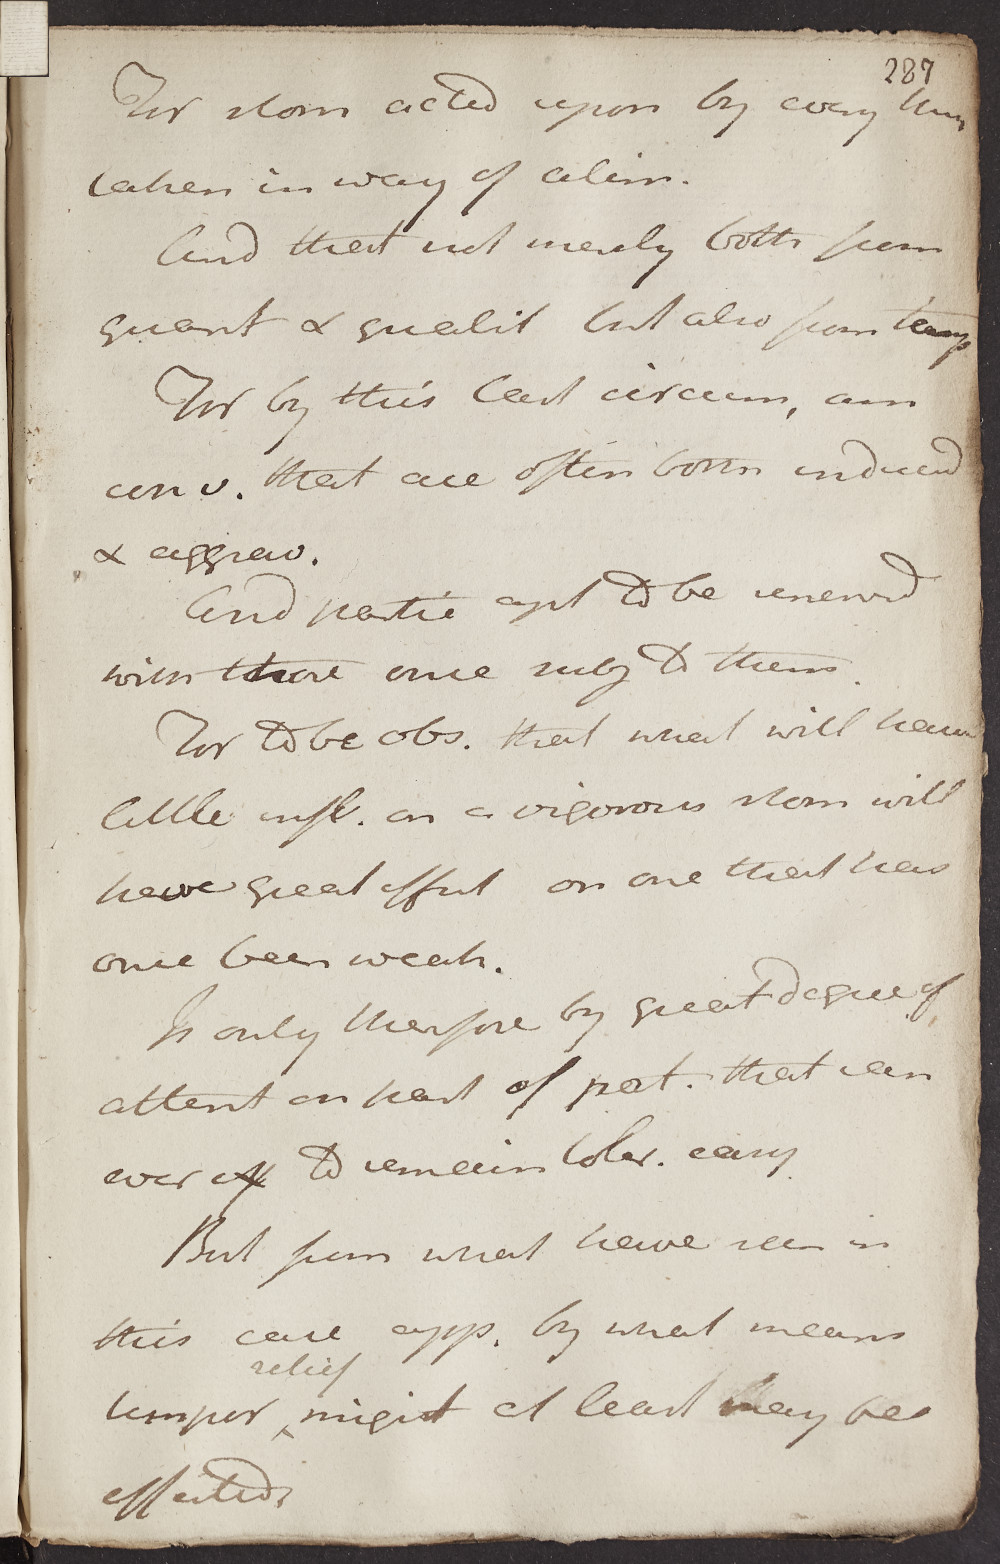 287
For stom acted upon by every thin
taken in way of alim.
And that not merely both from
quant & qualit but also from temp
For by this last circum, am
conv. that are often both induced
& aggrav.
And partic apt to be renewed
with those once subj to them.
For to be obs. that what will have
little infl. on a vigorous stom will
have great effect on one that has
once been weak.
Is only therefore by great degree of
attent on part of pat. that can
ever exp to remain toler. easy
But from what have seen in
this case app. by what means
relief
tempor ^ might at least may be
effected.